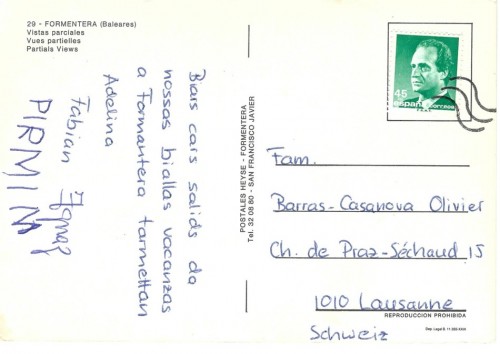 29 - FORMENTERA (Baleares)
Vistas parciales
Vues partielles
Partials Views
Biars cars salids da
nossas biallas vacanzas
a Formantera tarmettan
Adelina
Fabian Ignaz
PIRMIN
POSTALES HEYSE - FORMENTERA
Tel. 32 08 80 - SAN FRANCISCO JAVIER
45
españa correos
Fam.
Barras-Casanova Olivier
Ch. de Praz-Séchaud 15
1010 Lausanne
REPRODUCCION PROHIBIDA
Schweiz